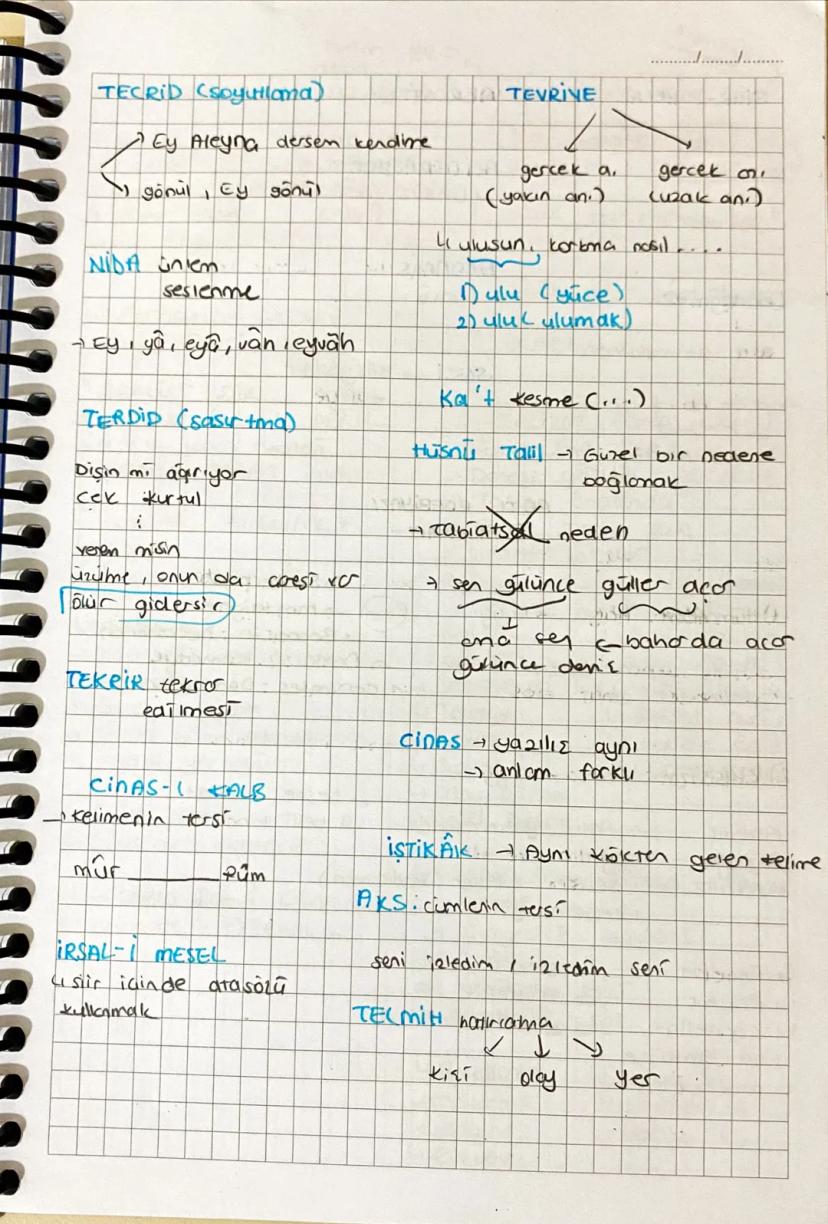 ......../......../........
TECRİD (soyutlama)
Ey Aleyna dersem kendime
gönül, Ey gönül
NİDA ünlem
seslenme
→ Ey, yâ, eyâ, vân, eyvâh
TERDİD (sasırtma)
Dişin mi ağrıyor
çek kurtul
:
verem misin
üzülme, onun da çaresi var
ölür gidersin
TEKRİR tekrar
edilmesi
CİNAS-I KALB
→ kelimenin tersi
mûr rûm
İRSAL-İ MESEL
↳ şiir içinde atasözü
kullanmak
TEVRİYE
gerçek a. gerçek an.
(yakın an.) (uzak an.)
↳ ulusun, korkma nasıl ....
1) ulu (yüce)
2) ulu (ulumak)
Ka't kesme (...)
Hüsnü Talil → Güzel bir nedene
bağlamak
→ tabiatsal neden
→ sen gülünce güller açar
ama sen ← baharda açar
gülünce demiş
CİNAS → yazılış aynı
→ anlam farklı
İŞTİKÂK → Aynı kökten gelen kelime
AKS: cümlenin tersi
seni izledim / izledim seni
TELMİH hatırlatma
kişi olay yer